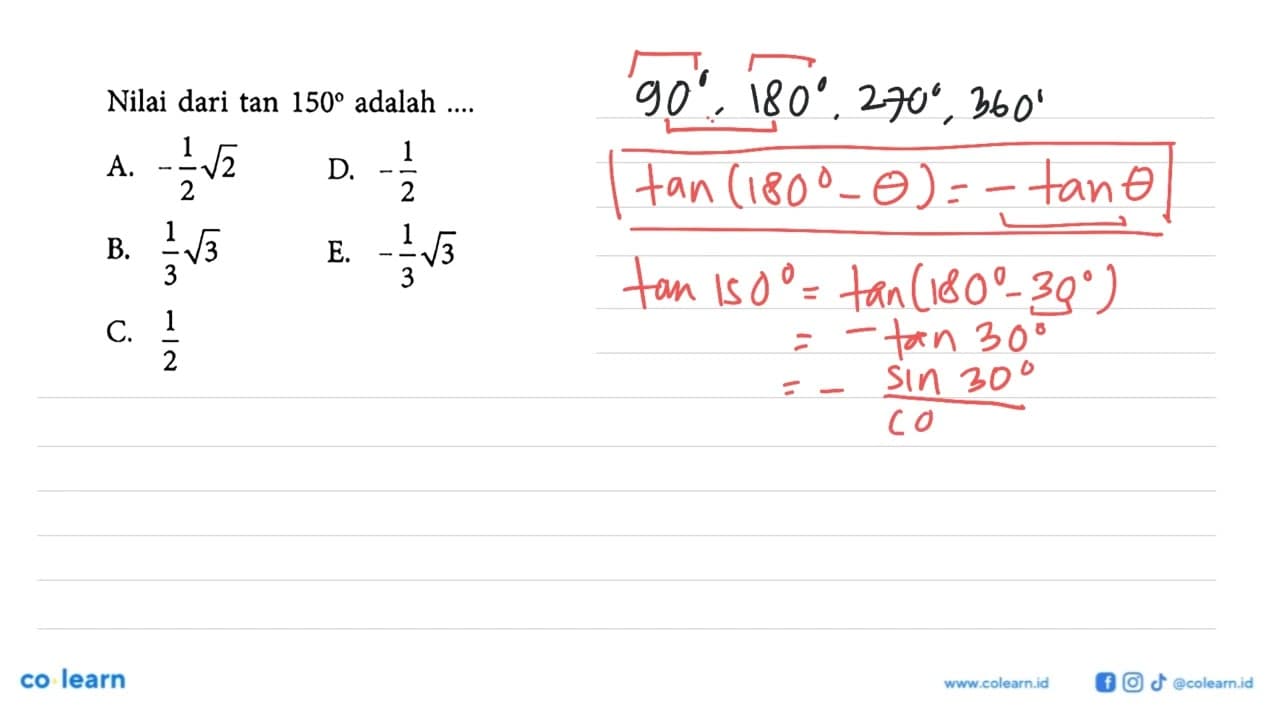 Nilai dari tan 150° adalah ....
A. -1/2√2 D. -1/2
B. 1/3√3 E. -1/3√3
C. 1/2
90°, 180°, 270°, 360°
tan(180° - θ) = - tan θ
tan 150° = tan(180° - 30°)
= - tan 30°
= - sin 30°
co
co learn
www.colearn.id @colearn.id